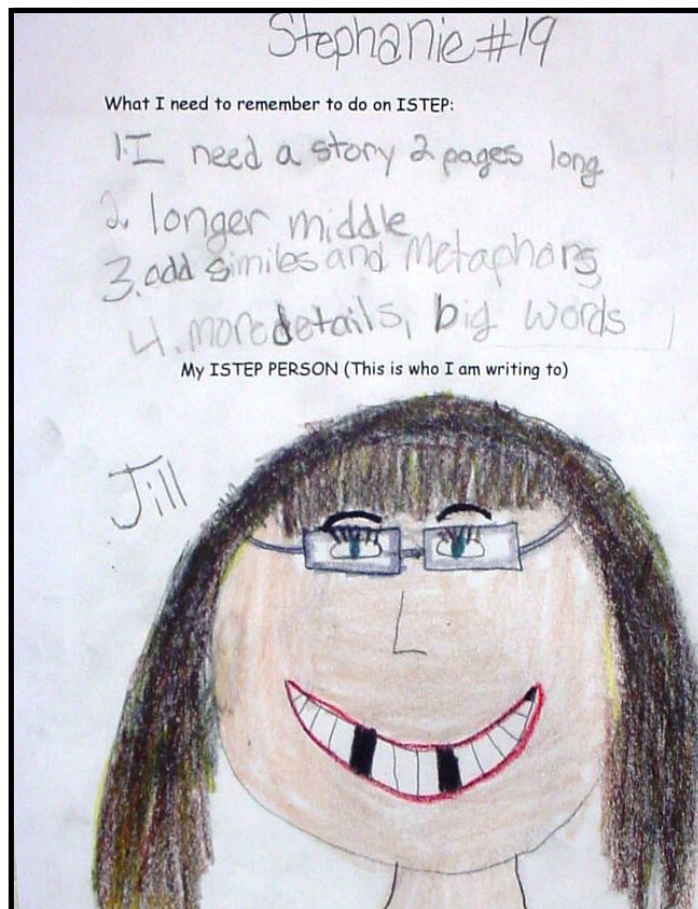 Stephanie #19
What I need to remember to do on ISTEP:
1. I need a story 2 pages long
2. longer middle
3. add similes and Metaphors
4. more details, big words
My ISTEP PERSON (This is who I am writing to)
Jill